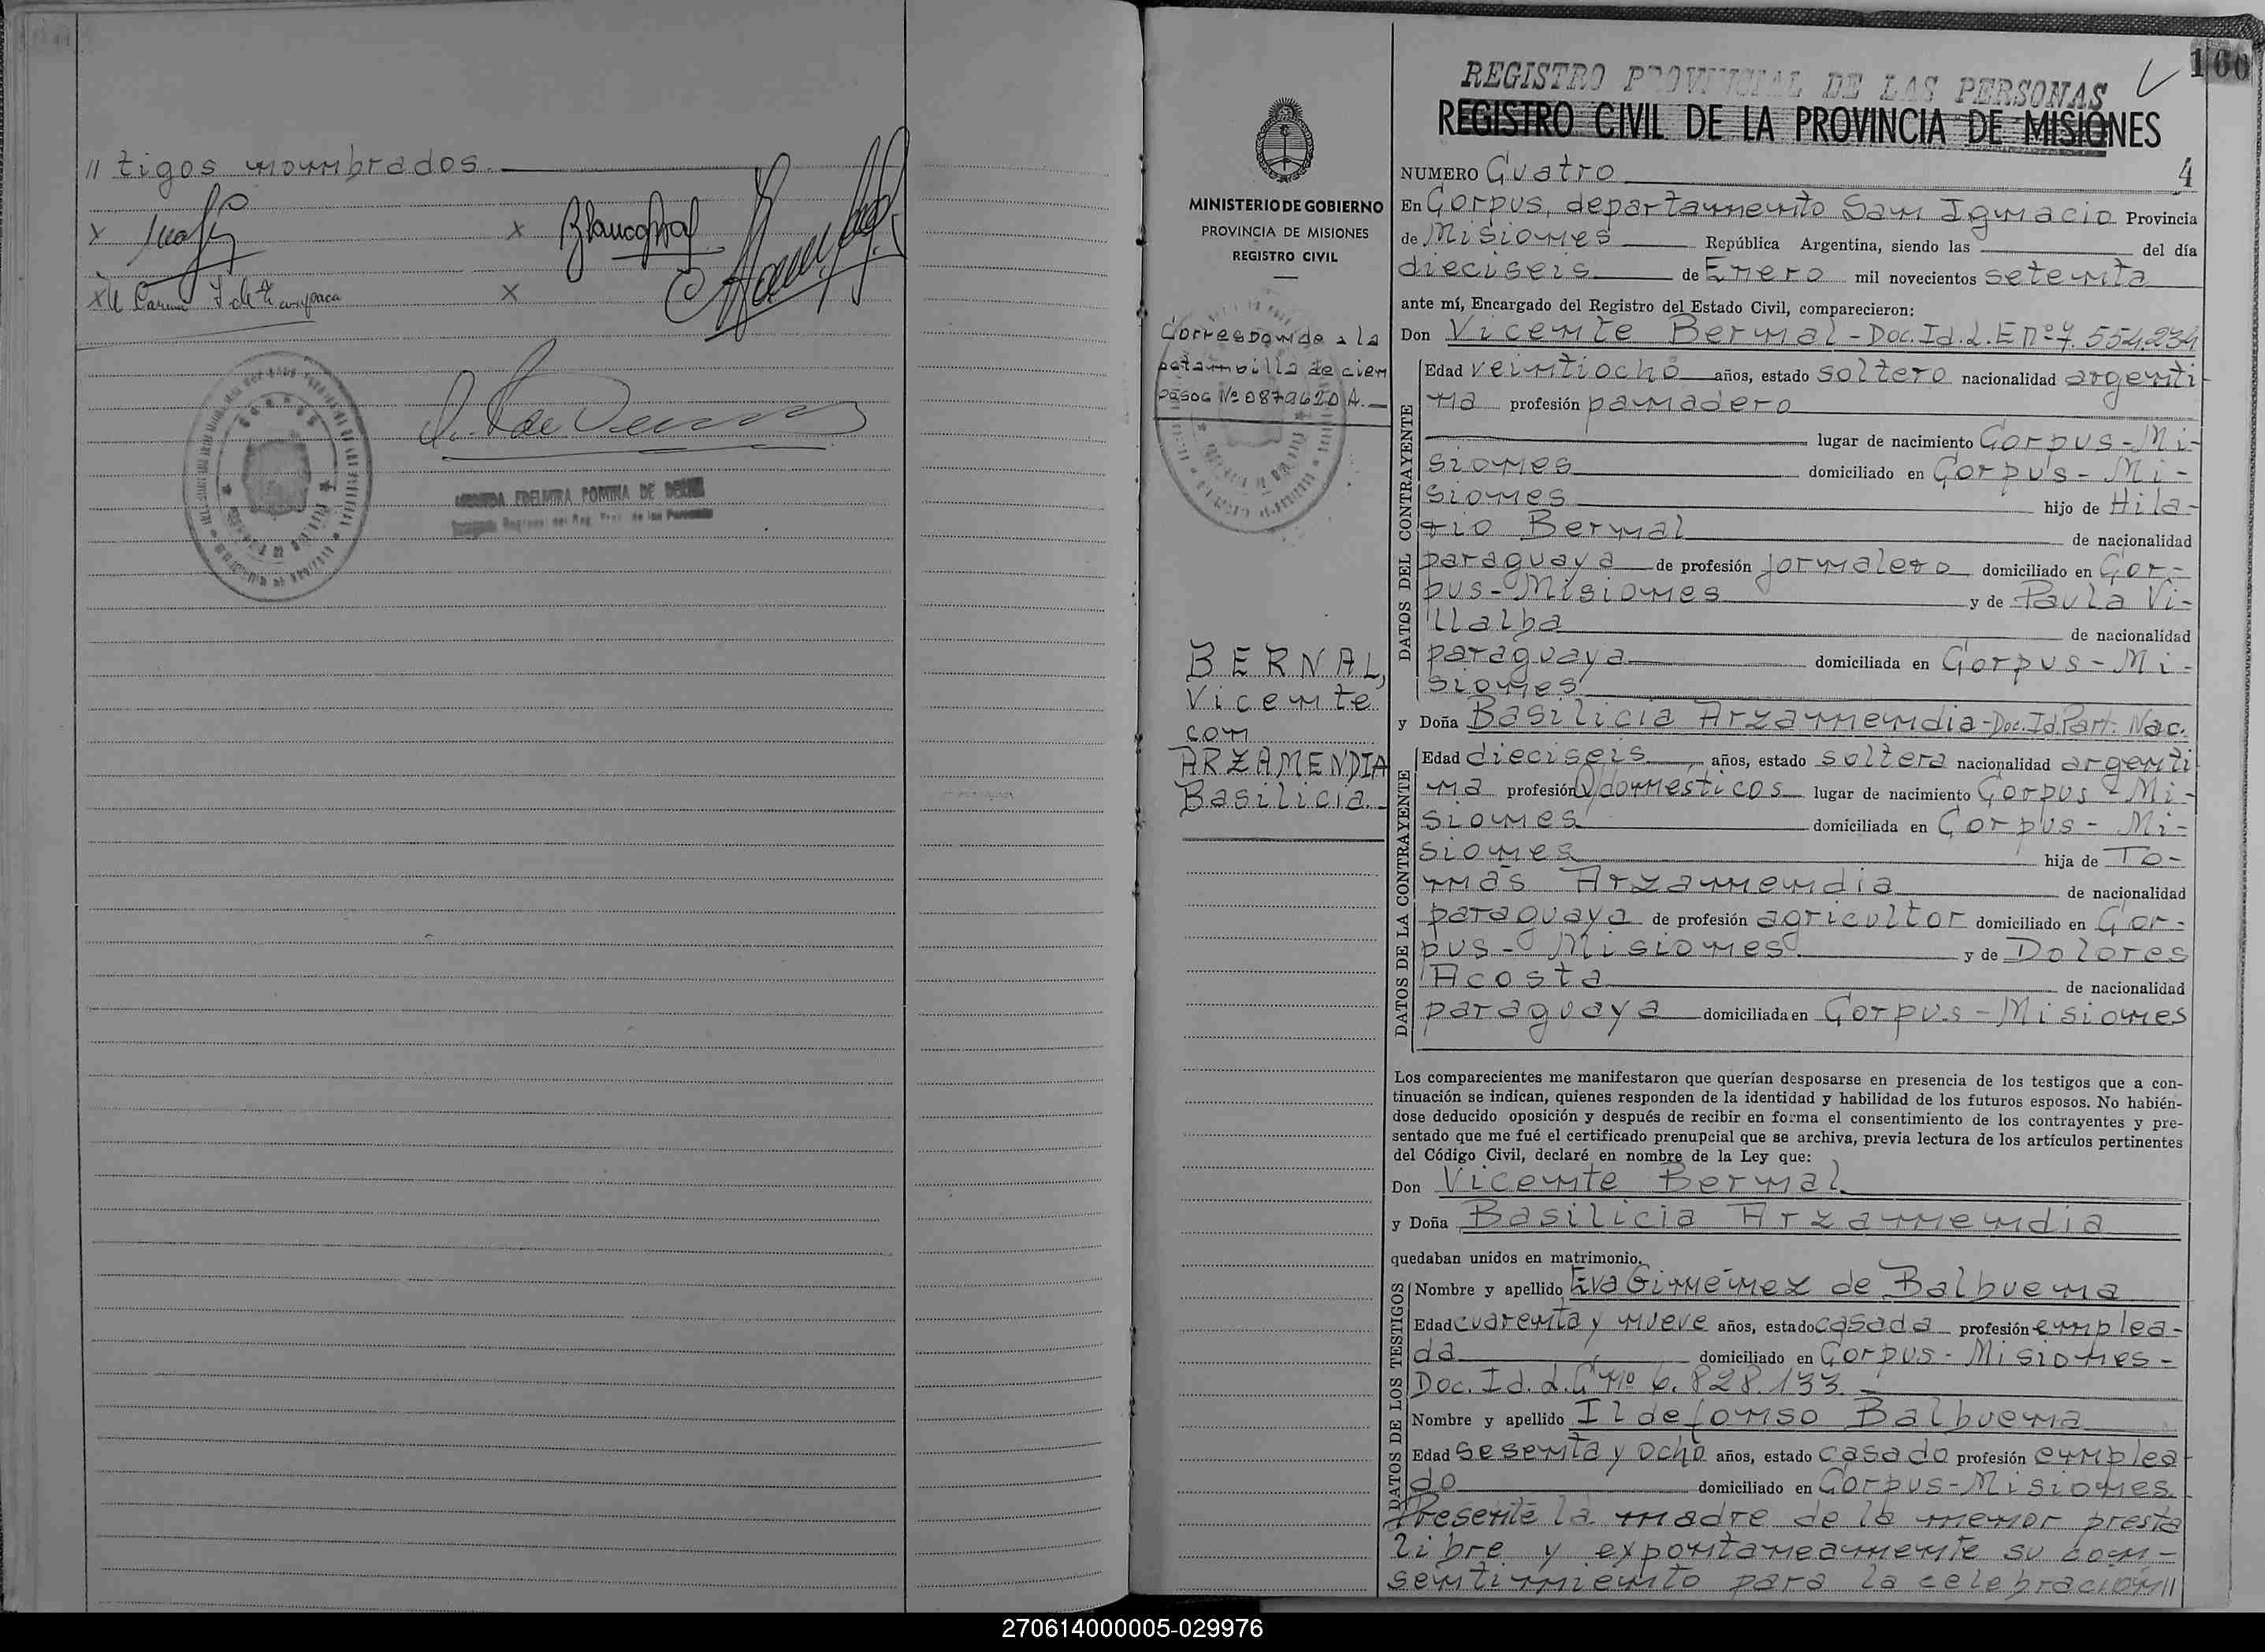 // tigos nombrados.
X
X
X
X
REGISTRO PROVINCIAL DE LAS PERSONAS
REGISTRO CIVIL DE LA PROVINCIA DE MISIONES
166
MINISTERIO DE GOBIERNO
PROVINCIA DE MISIONES
REGISTRO CIVIL
Corresponde a la
estampilla de cien
pesos Nº 0879620 A.
BERNAL,
Vicente
con
ARZAMENDIA
Basilicia.
NUMERO Cuatro 4
En Corpus, departamento San Ignacio Provincia
de Misiones República Argentina, siendo las del día
dieciseis de Enero mil novecientos setenta
ante mí, Encargado del Registro del Estado Civil, comparecieron:
Don Vicente Bernal - Doc. Id. L. E nº 7.554.234
DATOS DEL CONTRAYENTE
Edad veintiocho años, estado soltero nacionalidad argenti-
na profesión panadero
lugar de nacimiento Corpus - Mi-
siones domiciliado en Corpus - Mi-
siones hijo de Hila-
rio Bernal de nacionalidad
paraguaya de profesión jornalero domiciliado en Cor-
pus - Misiones y de Paula Vi-
llalba de nacionalidad
paraguaya domiciliada en Corpus - Mi-
siones
y Doña Basilicia Arzamendia - Doc. Id. Part. Nac.
DATOS DE LA CONTRAYENTE
Edad dieciseis años, estado soltera nacionalidad argenti-
na profesión Q/domésticos lugar de nacimiento Corpus - Mi-
siones domiciliada en Corpus - Mi-
siones hija de To-
más Arzamendia de nacionalidad
paraguaya de profesión agricultor domiciliado en Cor-
pus - Misiones y de Dolores
Acosta de nacionalidad
paraguaya domiciliada en Corpus - Misiones
Los comparecientes me manifestaron que querían desposarse en presencia de los testigos que a con-
tinuación se indican, quienes responden de la identidad y habilidad de los futuros esposos. No habién-
dose deducido oposición y después de recibir en forma el consentimiento de los contrayentes y pre-
sentado que me fué el certificado prenupcial que se archiva, previa lectura de los artículos pertinentes
del Código Civil, declaré en nombre de la Ley que:
Don Vicente Bernal
y Doña Basilicia Arzamendia
quedaban unidos en matrimonio.
DATOS DE LOS TESTIGOS
Nombre y apellido Eva Giménez de Balbuena
Edad cuarenta y nueve años, estado casada profesión emplea-
da domiciliado en Corpus - Misiones -
Doc. Id. L. C nº 6.828.133.
Nombre y apellido Ildefonso Balbuena
Edad sesenta y ocho años, estado casado profesión emplea-
do domiciliado en Corpus - Misiones.
Presente la madre de la menor presta
libre y expontaneamente su con-
sentimiento para la celebración//
270614000005-029976